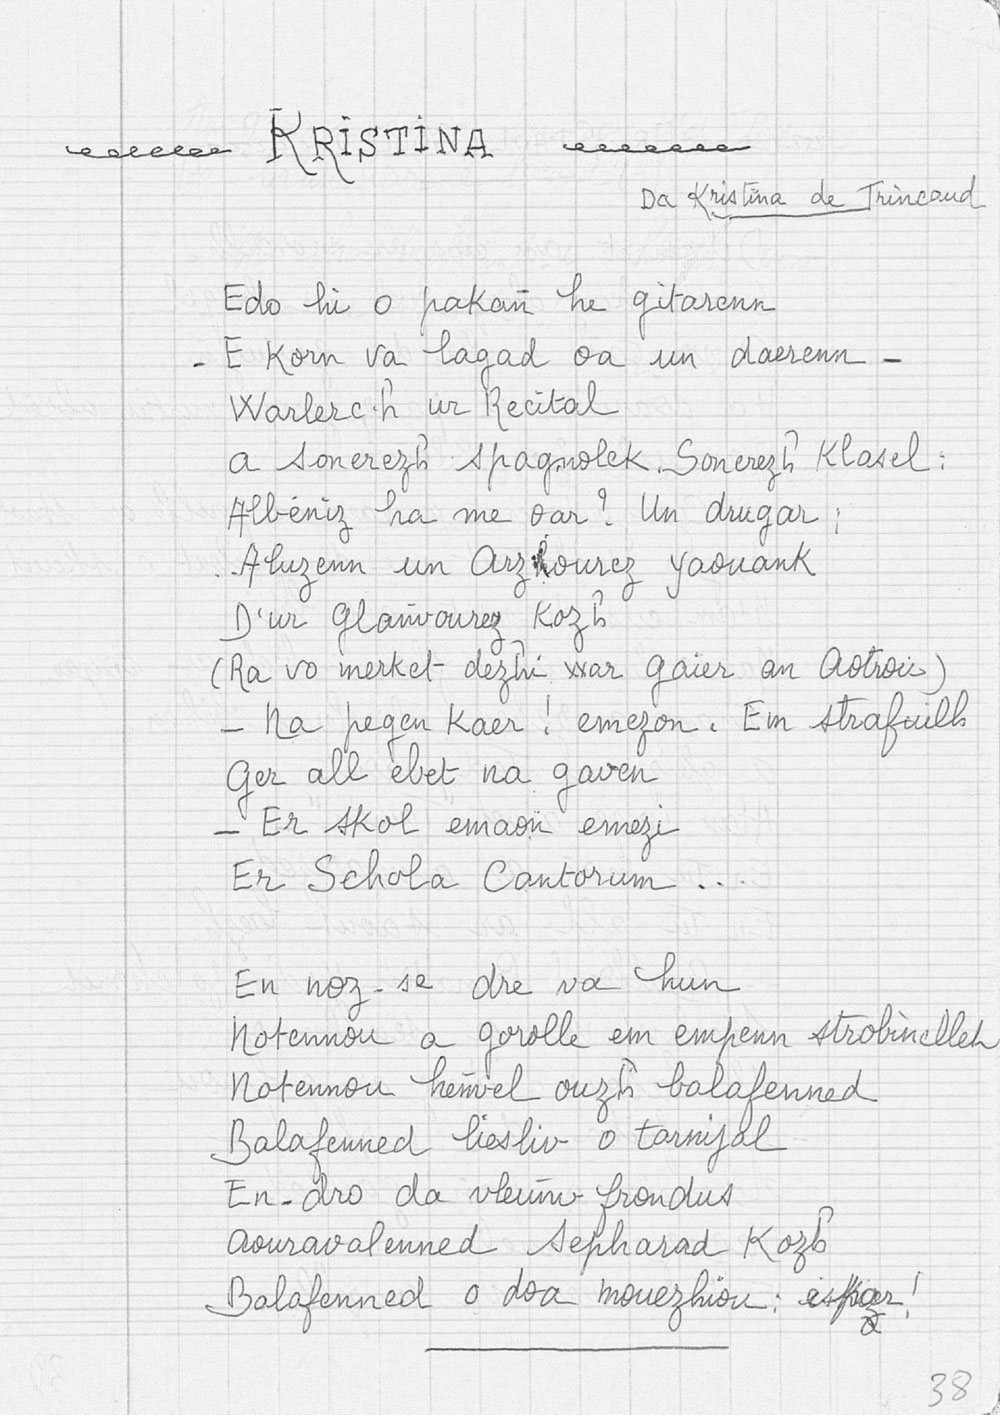 KRISTINA
Da Kristina de Trincaud
Edo hi o pakañ he gitarenn
- E korn va lagad oa un daerenn -
Warlerc'h ur Recital
a sonerezh spagnolek. Sonerezh klasel :
Albéniz ha me oar ? Un drugar ;
..Aluzenn un Arzourez yaouank
D'ur glañvourez kozh
(Ra vo merket dezhi war gaier an Aotroù)
- Na pegen kaer ! emezon. Em strafuilh
Ger all ebet na gaven
- Er skol emaon emezi
Er Schola Cantorum ...
En noz-se dre va hun
Notennoù a gorolle em empenn strobinelleh
Notennoù heñvel ouzh balafenned
Balafenned liesliv o tarnijal
En-dro da vleuñv frondus
Aouravalenned Sepharad kozh
Balafenned o doa mouezhioù :
38